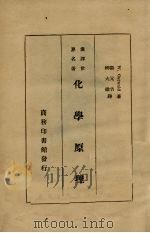 W. Ostwald 著
漢譯世
界名著
化學原理
商務印書館發行